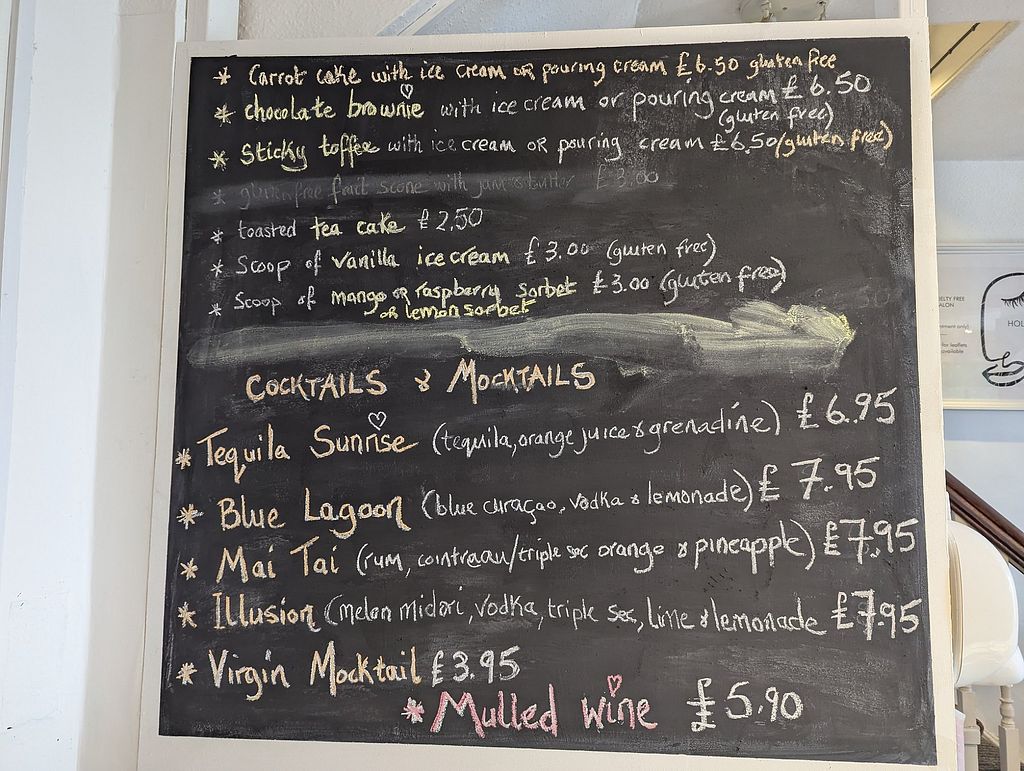 * Carrot cake with ice cream OR pouring cream £6.50 gluten free
* chocolate brownie with ice cream or pouring cream £6.50
(gluten free)
* Sticky toffee with ice cream OR pouring cream £6.50 (gluten free)
* gluten free fruit scone with jam & butter £3.00
* toasted tea cake £2.50
* Scoop of vanilla ice cream £3.00 (gluten free)
* Scoop of mango or raspberry sorbet £3.00 (gluten free)
or lemon sorbet
COCKTAILS & MOCKTAILS
* Tequila Sunrise (tequila, orange juice & grenadine) £6.95
* Blue Lagoon (blue curaçao, vodka & lemonade) £7.95
* Mai Tai (rum, cointreau/triple sec orange & pineapple) £7.95
* Illusion (melon midori, vodka, triple sec, lime & lemonade £7.95
* Virgin Mocktail £3.95
* Mulled wine £5.90
HOL